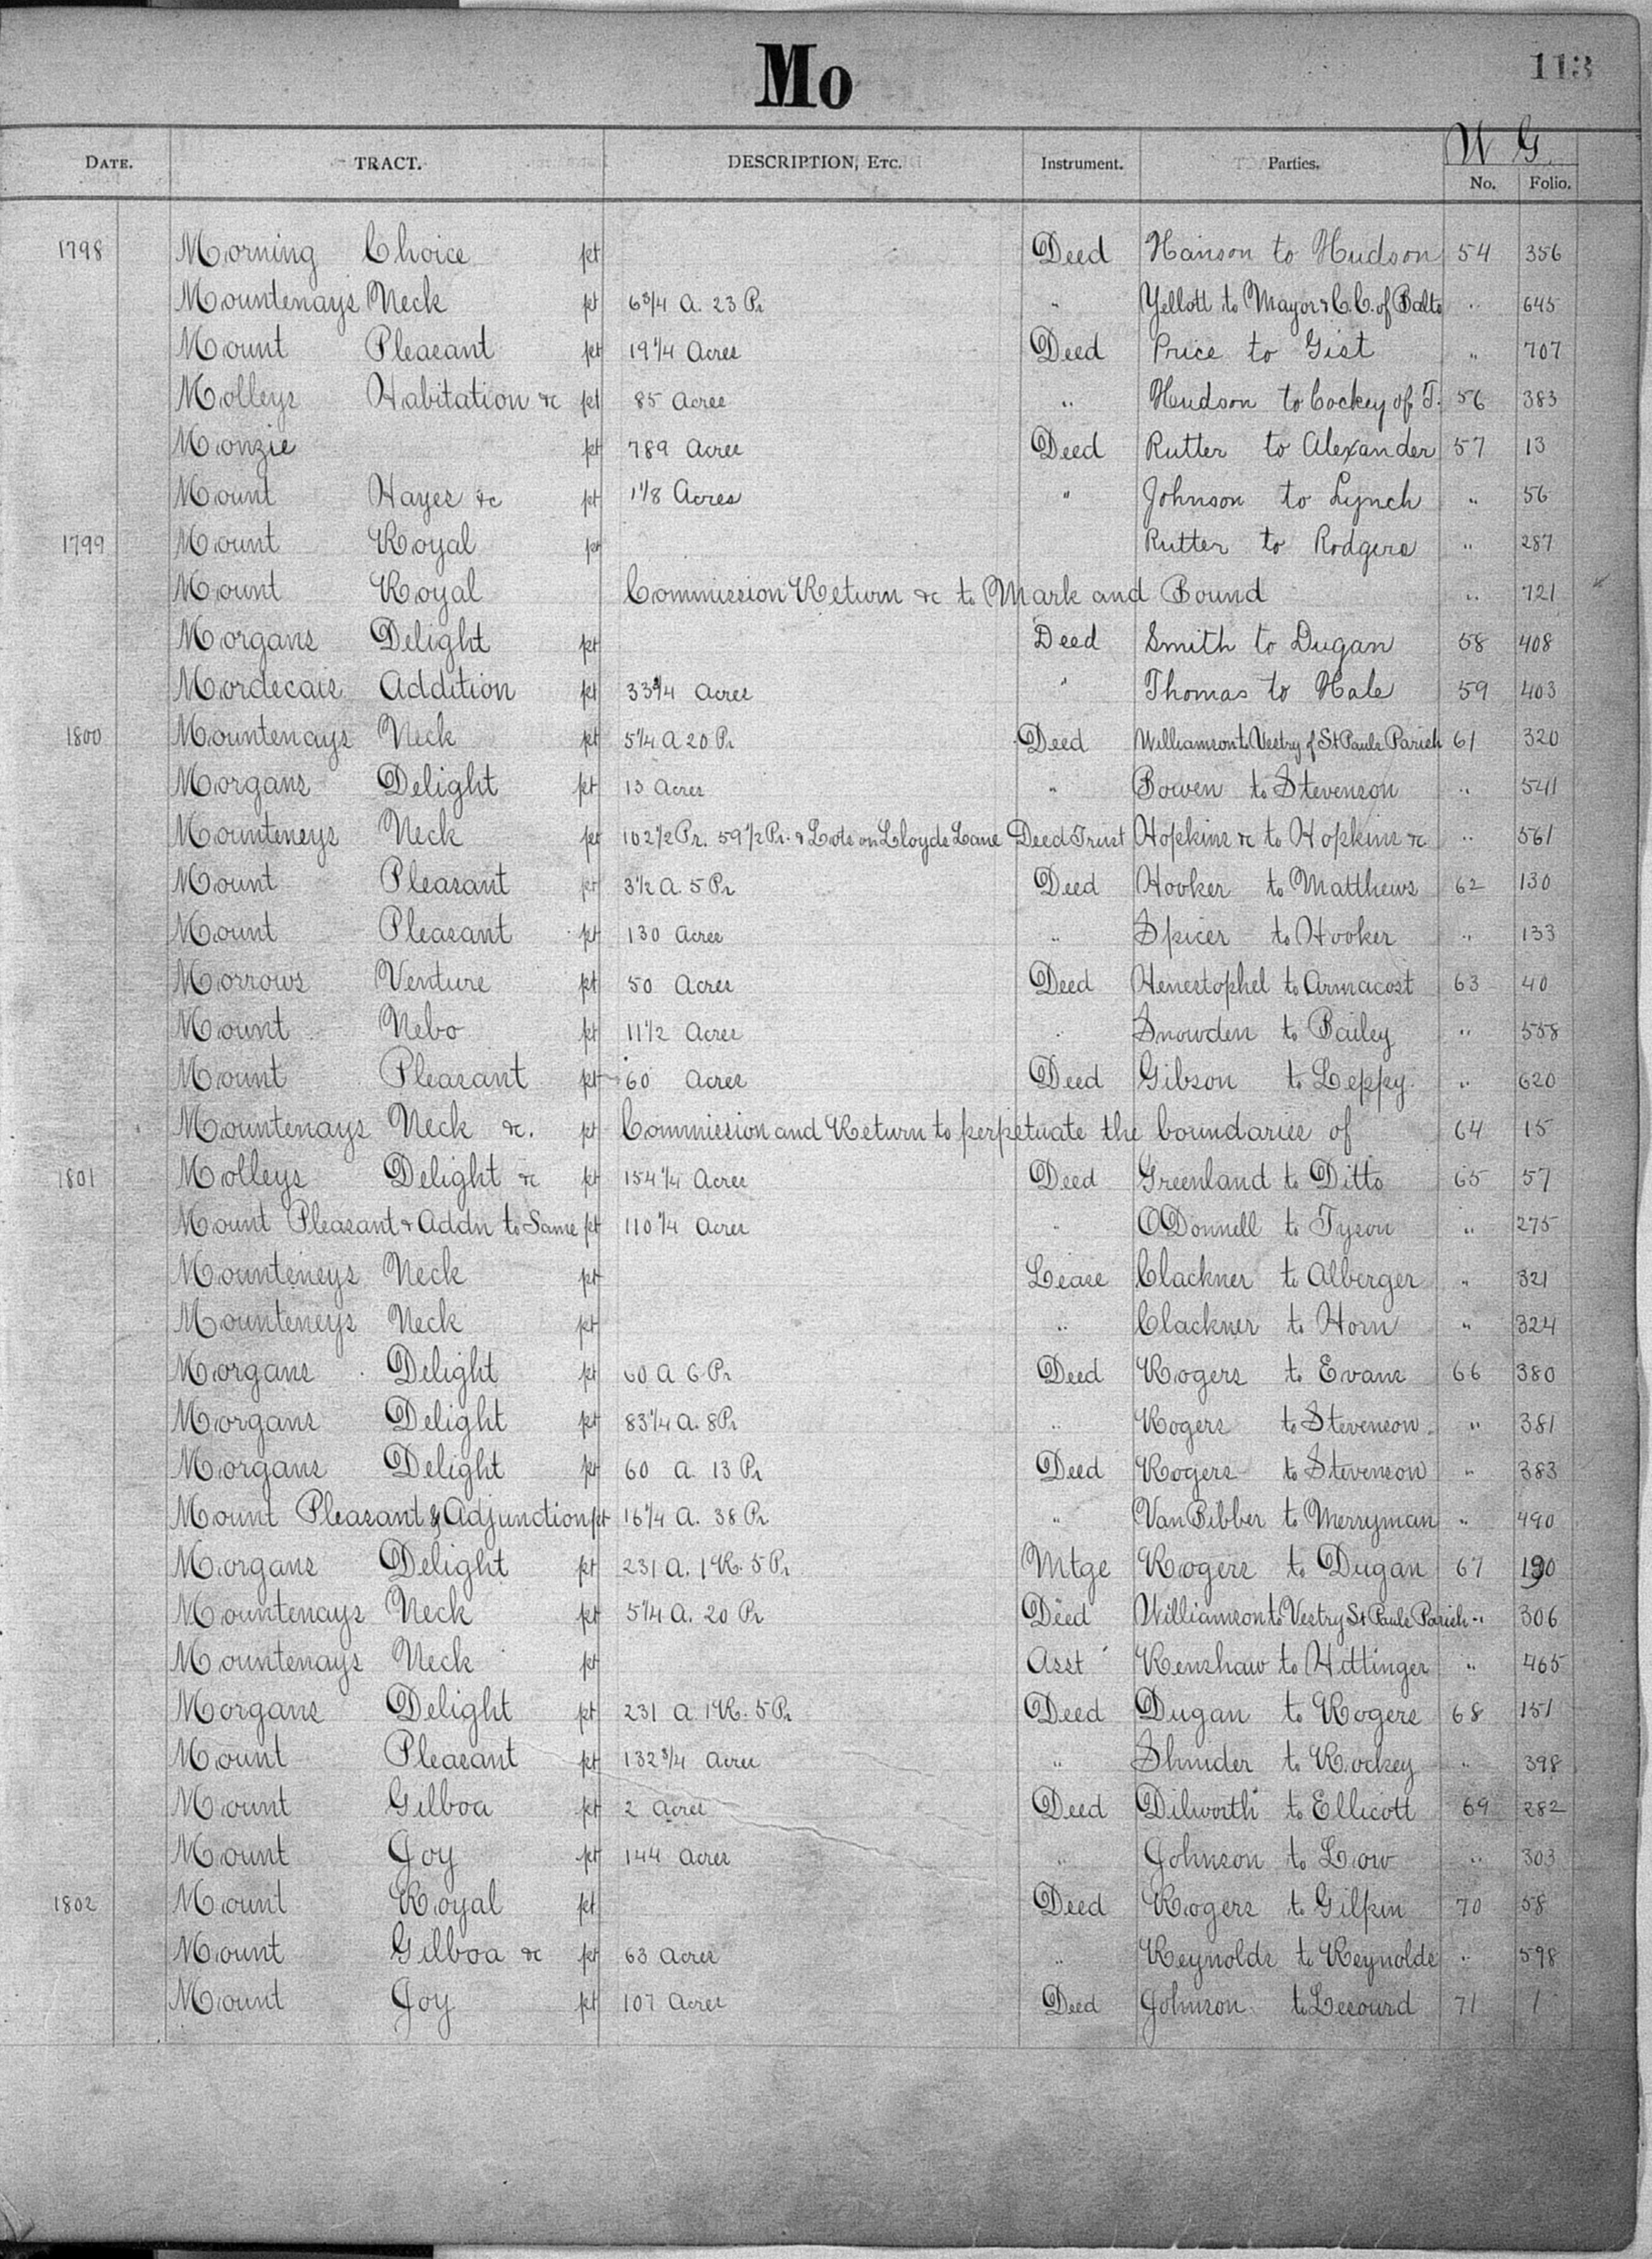 Mo
113
DATE. TRACT. DESCRIPTION, ETC. Instrument. Parties. W G. No. Folio.
1798 Morning Choice pt Deed Hanson to Hudson 54 356
Mountenays Neck pt 6 3/4 A. 23 Pr " Yellott to Mayor & C.C. of Balto " 645
Mount Pleasant pt 19 1/4 Acres Deed Price to Gist " 707
Molleys Habitation &c pt 85 Acres " Hudson to Cockey of T. 56 383
Monzie pt 789 Acres Deed Rutter to Alexander 57 13
Mount Hayes &c pt 1 1/8 Acres " Johnson to Lynch " 56
1799 Mount Royal pt Rutter to Rodgers " 287
Mount Royal Commission Return &c to Mark and Bound " 721
Morgans Delight pt Deed Smith to Dugan 58 408
Mordecais Addition pt 33 3/4 Acres " Thomas to Hale 59 403
1800 Mountenays Neck pt 5 1/4 A 20 Pr Deed Williamson to Vestry of St Pauls Parish 61 320
Morgans Delight pt 13 Acres " Bowen to Stevenson " 541
Mounteneys Neck pt 102 1/2 Pr. 59 1/2 Pr. & Lots on Lloyds Lane Deed Trust Hopkins &c to Hopkins &c " 561
Mount Pleasant pt 3 1/2 A. 5 Pr Deed Hooker to Matthews 62 130
Mount Pleasant pt 130 Acres " Spicer to Hooker " 133
Morrows Venture pt 50 Acres Deed Henestophel to Armacost 63 40
Mount Nebo pt 11 1/2 Acres " Snowden to Bailey " 558
Mount Pleasant pt 60 Acres Deed Gibson to Leppy " 620
Mountenays Neck &c. pt Commission and Return to perpetuate the boundaries of 64 15
1801 Molleys Delight &c pt 154 1/4 Acres Deed Greenland to Ditto 65 57
Mount Pleasant & Addn to Same pt 110 1/4 Acres " ODonnell to Tyson " 275
Mounteneys Neck pt Lease Clackner to Alberger " 321
Mounteneys Neck pt " Clackner to Horn " 324
Morgans Delight pt 60 A 6 Pr Deed Rogers to Evans 66 380
Morgans Delight pt 83 1/4 A. 8 Pr " Rogers to Stevenson. " 381
Morgans Delight pt 60 A. 13 Pr Deed Rogers to Stevenson " 383
Mount Pleasant & Adjunction pt 16 1/4 A. 38 Pr " Van Bibber to Merryman " 490
Morgans Delight pt 231 A. 1 R. 5 Pr Mtge Rogers to Dugan 67 190
Mountenays Neck pt 5 1/4 A. 20 Pr Deed Williamson to Vestry St Pauls Parish " 306
Mountenays Neck pt Asst Renshaw to Hittinger " 465
Morgans Delight pt 231 A 1 R. 5 Pr Deed Dugan to Rogers 68 151
Mount Pleasant pt 132 3/4 Acres " Shnider to Rockey " 398
Mount Gilboa pt 2 Acres Deed Dilworth to Ellicott 69 282
Mount Joy pt 144 Acres " Johnson to Low " 303
1802 Mount Royal pt Deed Rogers to Gilpin 70 58
Mount Gilboa &c pt 63 Acres " Reynolds to Reynolds " 598
Mount Joy pt 107 Acres Deed Johnson to Lecourd 71 1